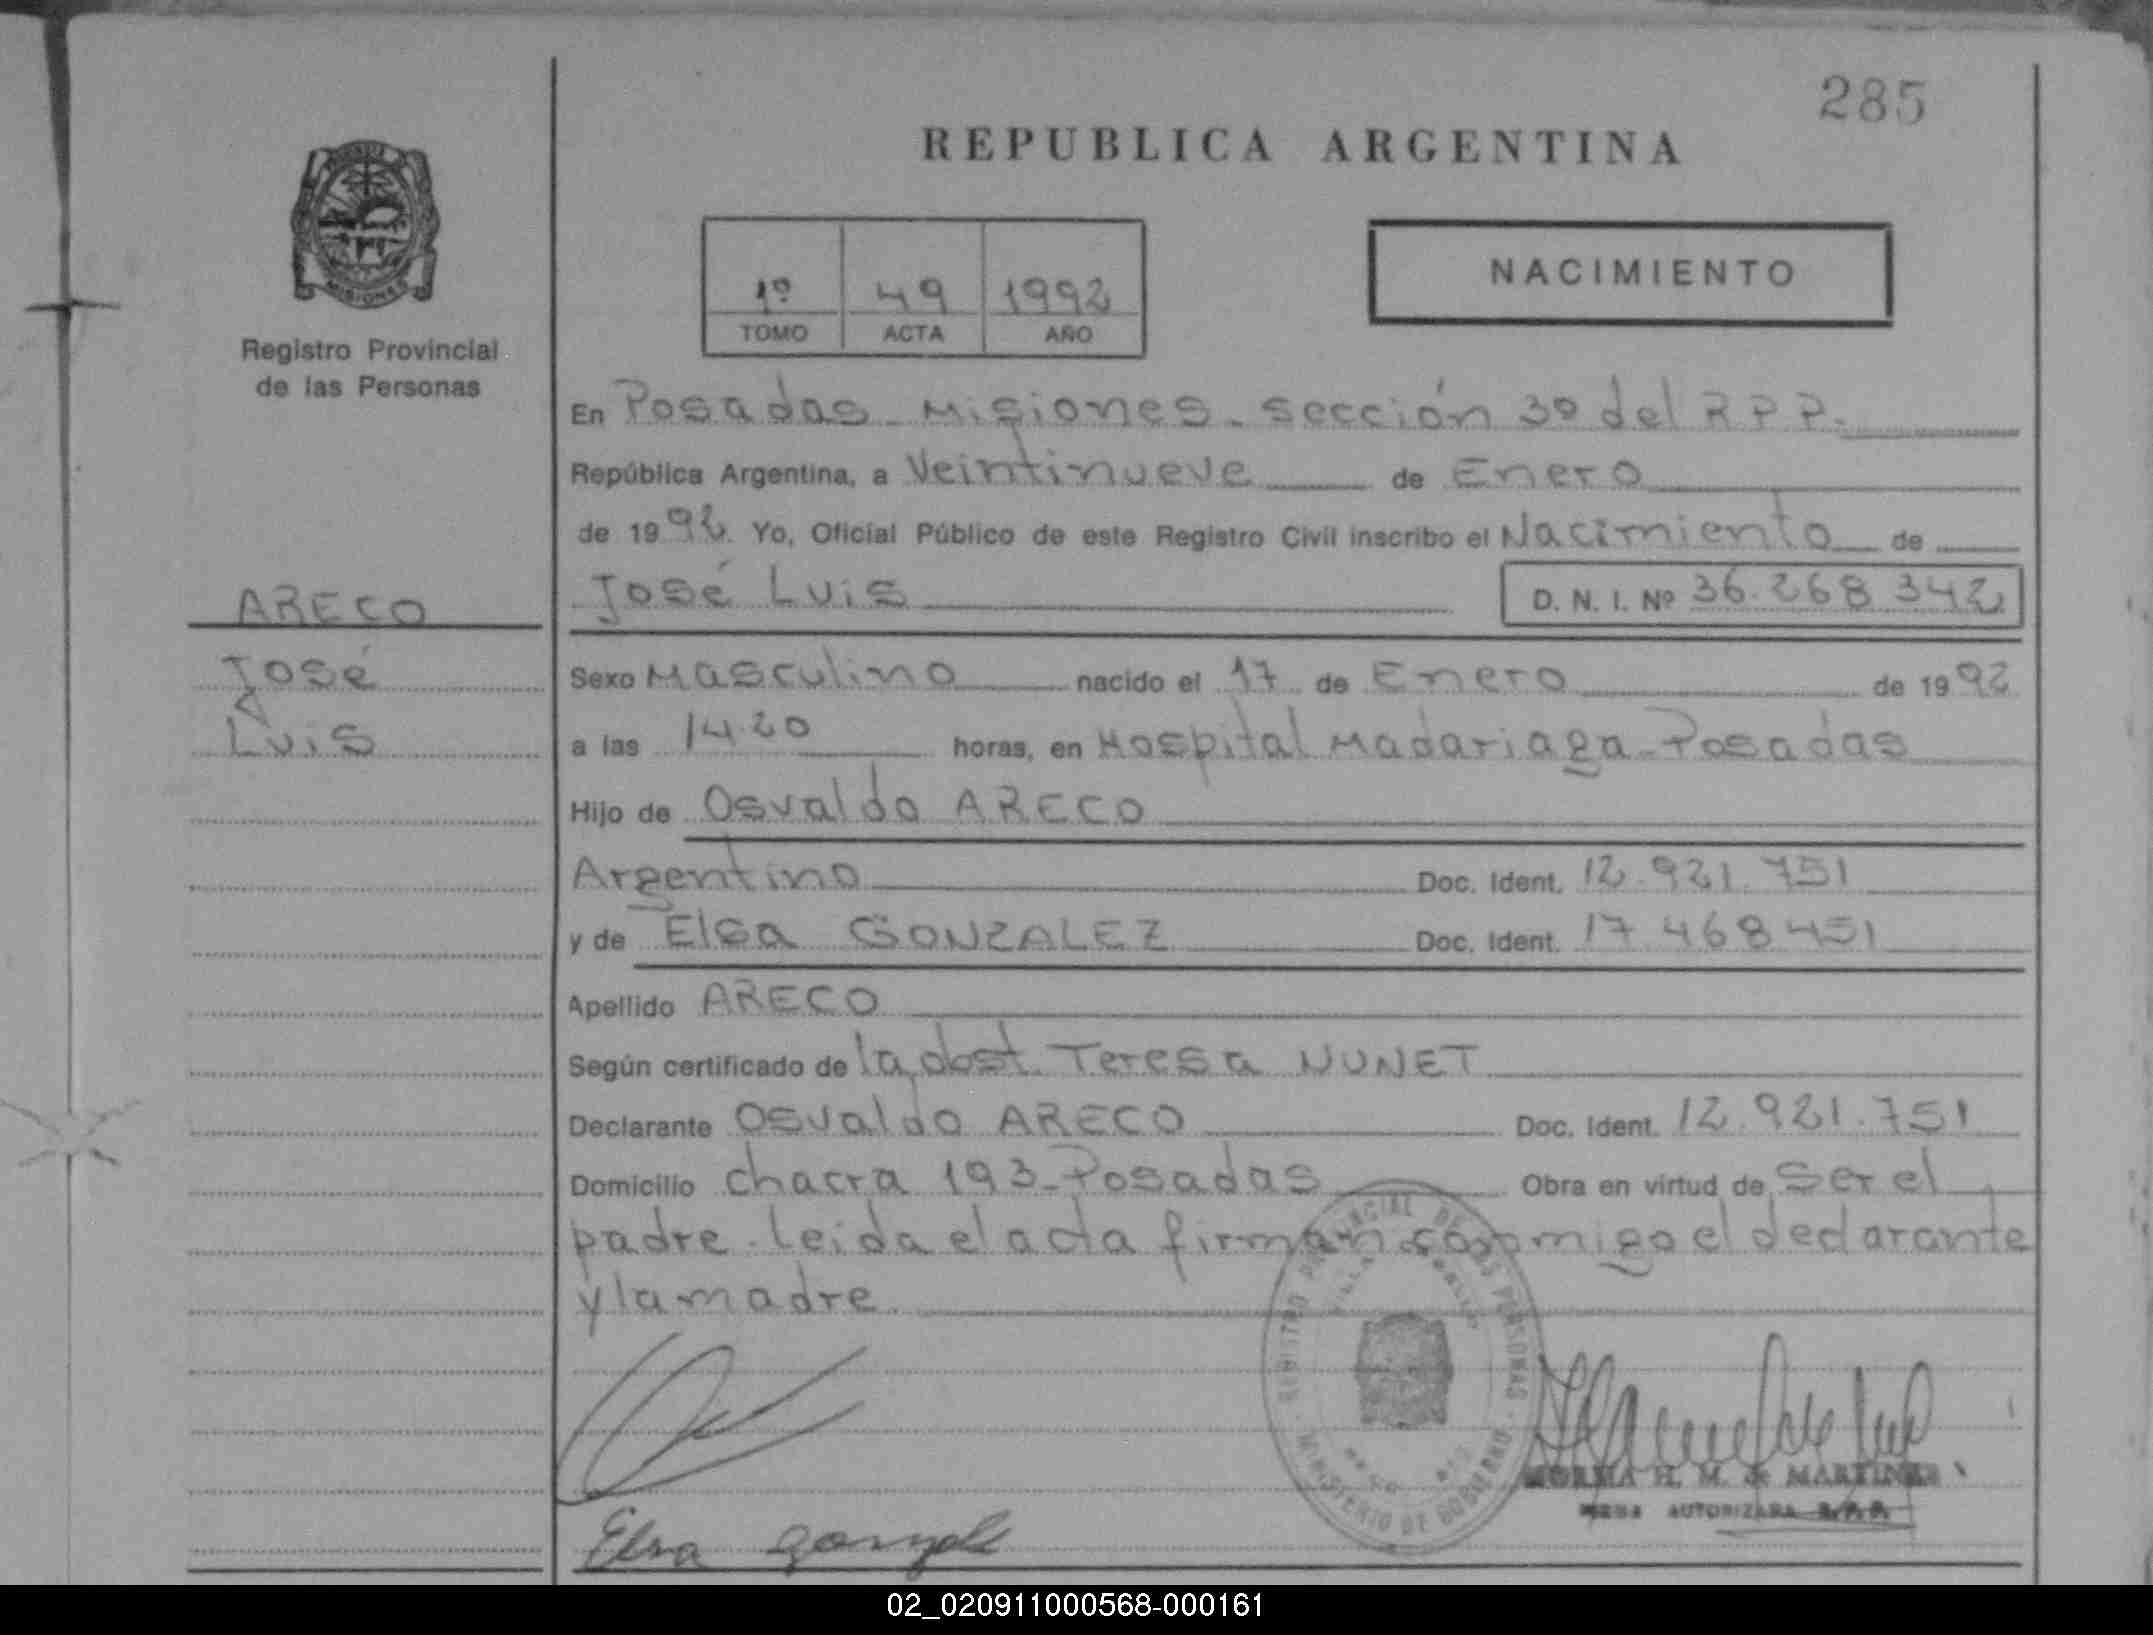 285
REPUBLICA ARGENTINA
MISIONES
Registro Provincial
de las Personas
1º 49 1992
TOMO ACTA AÑO
NACIMIENTO
En Posadas - Misiones - sección 3º del R P P.
República Argentina, a Veintinueve de Enero
de 1992. Yo, Oficial Público de este Registro Civil inscribo el Nacimiento de
José Luis D. N. I. Nº 36.268 342
ARECO
José
Luis
Sexo Masculino nacido el 17 de Enero de 1992
a las 14.20 horas, en Hospital Madariaga - Posadas
Hijo de Osvaldo ARECO
Argentino Doc. Ident. 12.921.751
y de Elsa GONZALEZ Doc. Ident. 17 468 451
Apellido ARECO
Según certificado de la obst. Teresa NUNET
Declarante Osvaldo ARECO Doc. Ident. 12.921.751
Domicilio chacra 193 - Posadas Obra en virtud de ser el
padre. leida el acta firman conmigo el declarante
y la madre
REGISTRO PROVINCIAL DE LAS PERSONAS
MINISTERIO DE GOBIERNO
H. M. de MARTINEZ
AUTORIZADA R.P.P.
Elsa
02_020911000568-000161